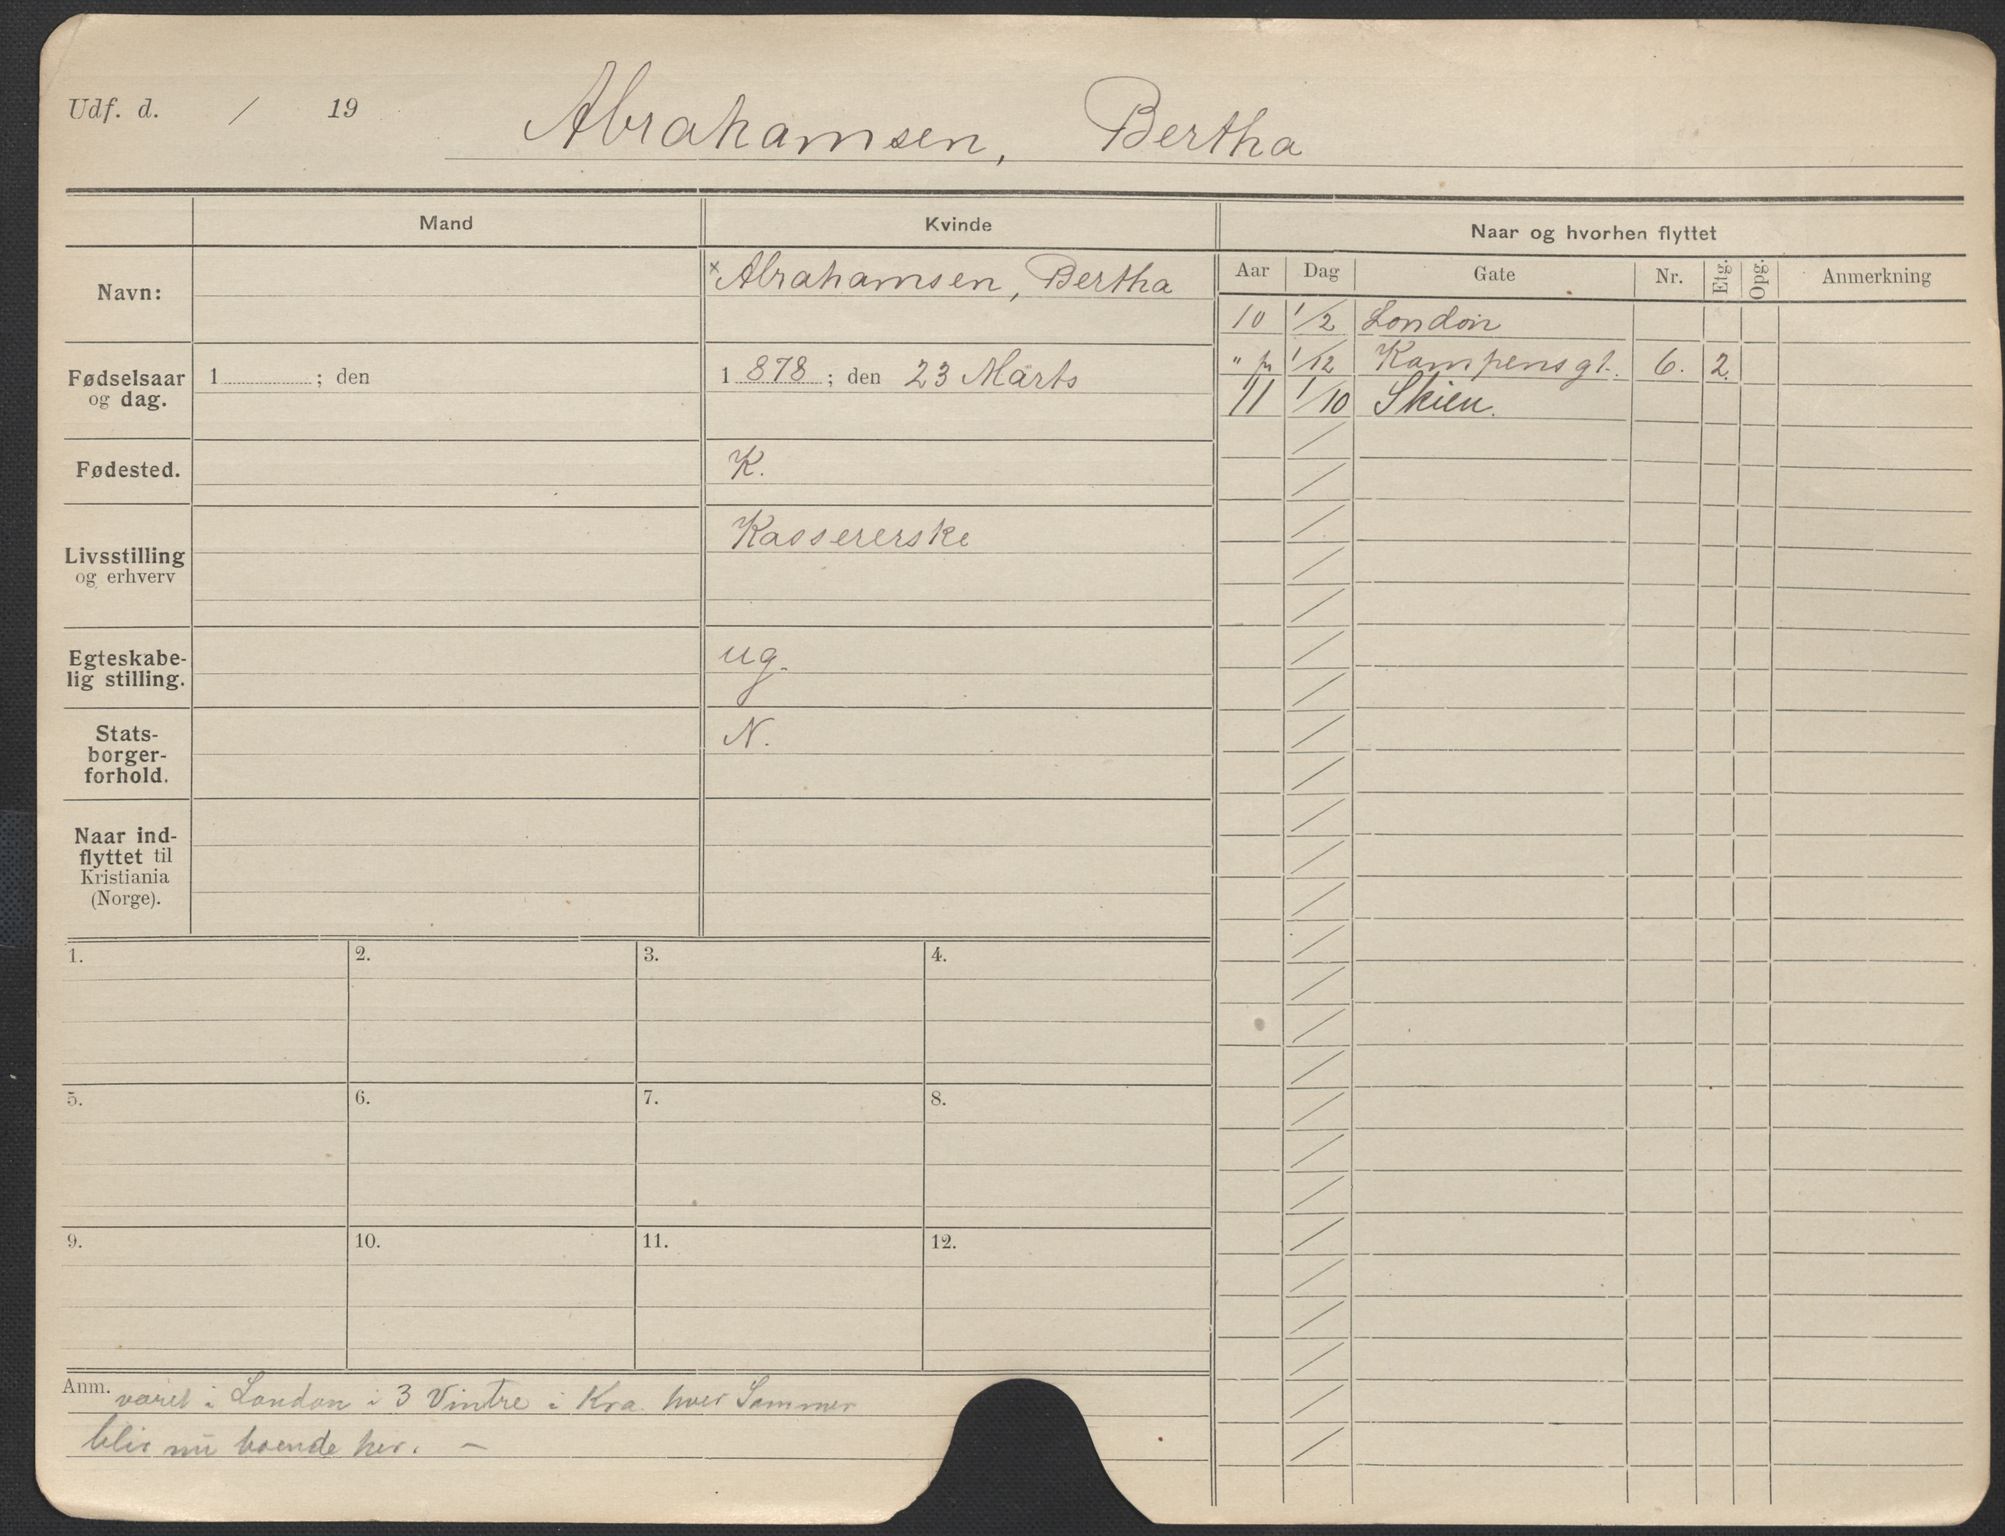 Udf. d. / 19
Abrahamsen, Bertha
Mand
Kvinde
Naar og hvorhen flyttet
Navn:
× Abrahamsen, Bertha
Fødselsaar og dag.
1 ; den
1 878 ; den 23 Marts
Fødested.
K.
Livsstilling og erhverv
Kassererske
Egteskabe-
lig stilling.
ug.
Stats-
borger-
forhold.
N.
Naar ind-
flyttet til
Kristiania
(Norge).
Aar Dag Gate Nr. Etg. Opg. Anmerkning
10 1/2 London
" fr 1/12 Kampensgt. 6. 2.
11 1/10 Skien.
1. 2. 3. 4.
5. 6. 7. 8.
9. 10. 11. 12.
Anm. været i London i 3 Vintre i Kra. hver Sommer
blir nu boende her. –